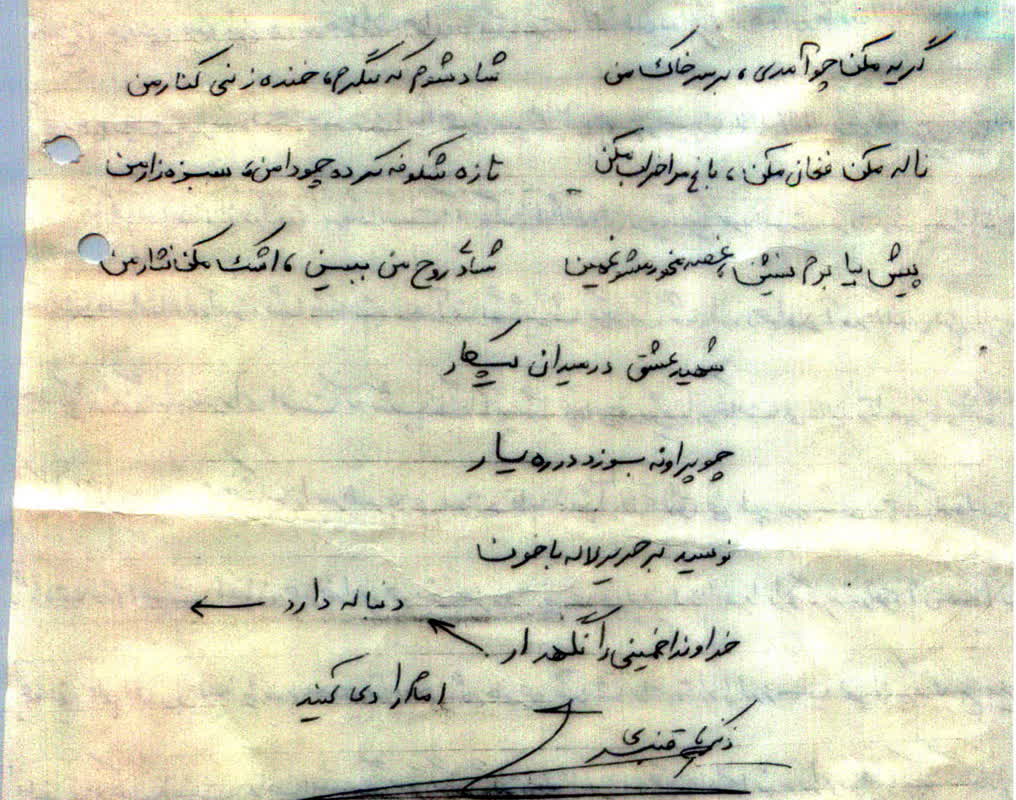 گریه مکن چو آمدی، بر سر خاک من شاد شوم که بنگرم، خنده زنی کنار من
ناله مکن فغان مکن، باغ مرا خراب مکن تازه شکوفه کرده چو دامن، سبزه زار من
پیش بیا برم بنشین، غصه مخور مشو غمین شادی روح من ببین، اشک مکن نثار من
شهید عشق در میدان پیکار
چو پراونه بسوزد در ره یار
نویسد بر حریر لاله با خون
دنباله دارد ←
خداوندا خمینی را نگهدار
امام را دعا کنید
قنبری